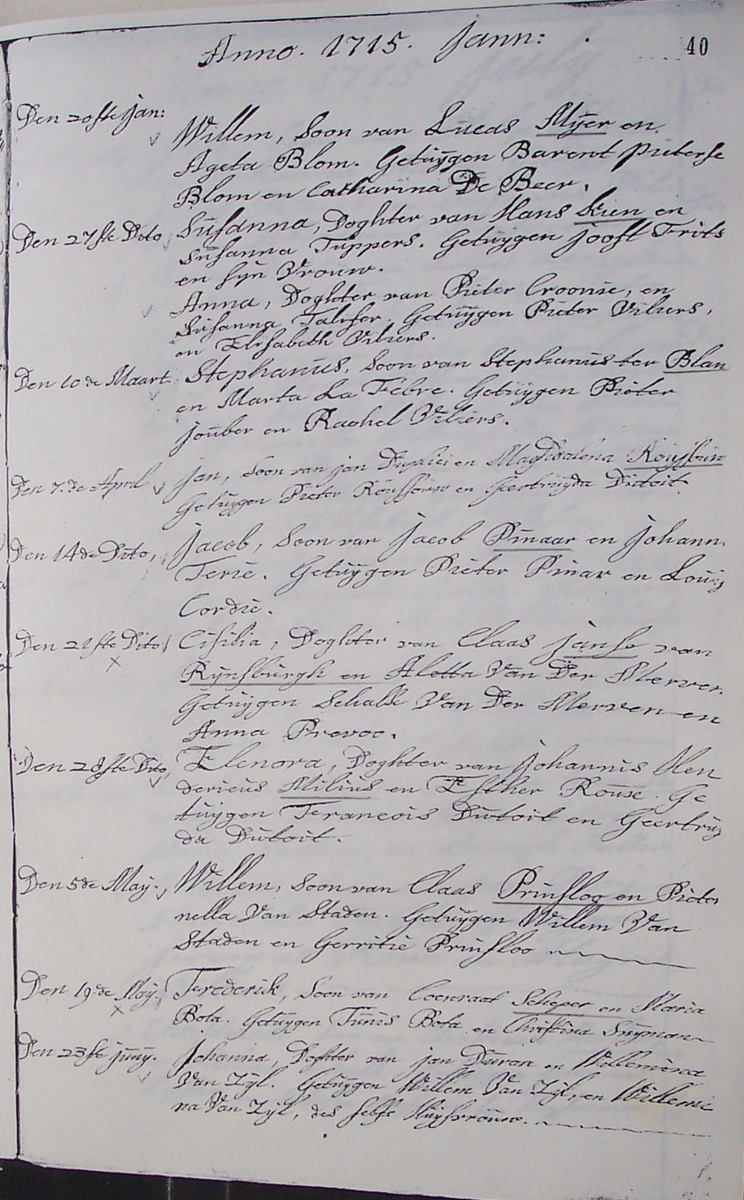 Anno. 1715. Jann:
40
Den 20ste Jan:
Willem, Soon van Lucas Myer en
Ageta Blom. Getuygen Barent Pieterse
Blom en Catharina De Beer.
Den 27ste Dito
Susanna, Doghter van Hans en
Susanna Tuppers. Getuygen Joost Frits
en syn Vrouw.
Anna, Doghter van Pieter Croonie, en
Susanna Getuygen Pieter Viliers,
en Elisabeth Viliers.
Den 10de Maart
Stephanus, Soon van Stephanus ter Blan
en Marta La Febre. Getuygen Pieter
Jouber en Raghel Viliers.
Den 7.de April
Jan, Soon van Jan en Maghdalena
Getuygen Pieter en Geertruyda Dutoit.
Den 14de Dito,
Jacob, Soon van Jacob Pinaar en Johann.
Terie. Getuygen Pieter Pinar en Louis
Cordie.
Den 21ste Dito
Cisilia, Doghter van Claas Janse van
Rynsburgh en Aletta Van Der Merven.
Getuygen Schalk Van Der Merven en
Anna Prevoo.
Den 28ste Dito
Elenora, Doghter van Johannis Hen
dericus Milius en Esther Rouse. Ge
tuygen Ferancois Dutoit en Geertruy
da Dutoit.
Den 5de May.
Willem, Soon van Claas Prinsloo en Pieter
nella Van Staden. Getuygen Willem Van
Staden en Gerritie Prinsloo
Den 19.de May.
Frederik, Soon van Coenraat Scheper en Maria
Bota. Getuygen Tunis Bota en Christina Snyman
Den 23ste Juny.
Johanna, Doghter van Jan Duran en Willemina
Van Zyl. Getuygen Willem Van Zyl, en Willemi
na Van Zyl, des selfs Huysvrouw.